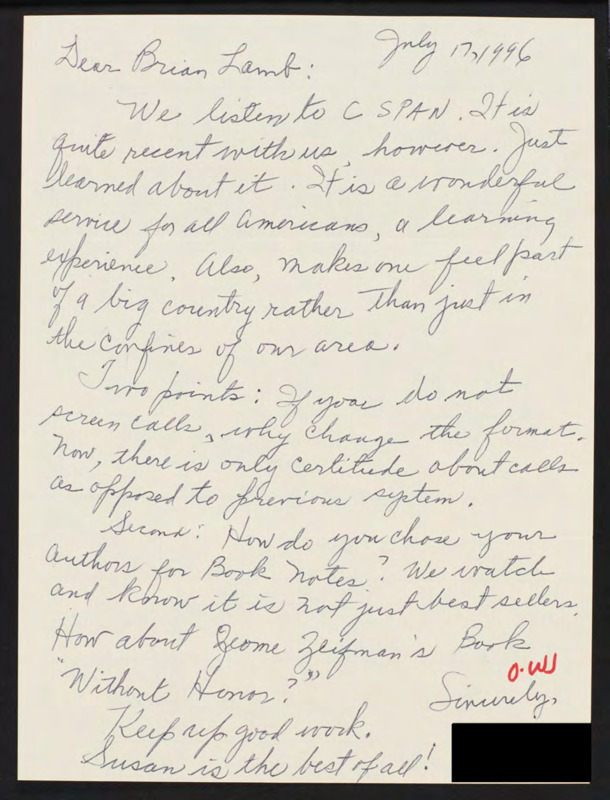 July 17, 1996
Dear Brian Lamb:
We listen to C SPAN. It is
quite recent with us, however. Just
learned about it. It is a wonderful
service for all Americans, a learning
experience. Also, makes one feel part
of a big country rather than just in
the confines of our area.
Two points: If you do not
screen calls, why change the format.
Now, there is only certitude about calls
as opposed to previous system.
Second: How do you chose your
authors for Book Notes? We watch
and know it is not just best sellers.
How about Zeifman's Book
"Without Honor?"
Sincerely,
Keep up good work.
Susan is the best of all!